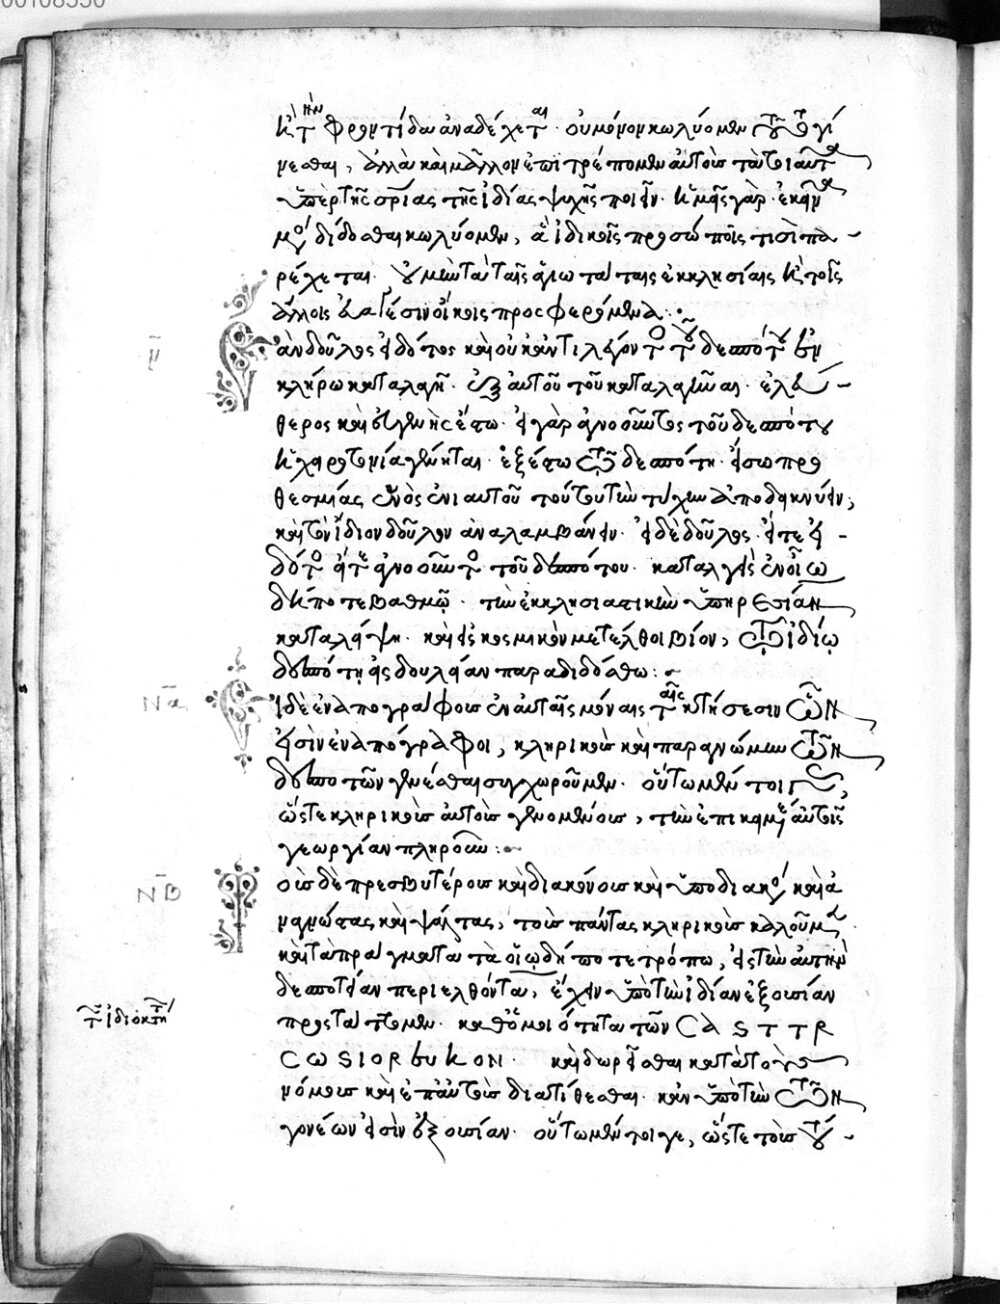 καὶ τὴν φροντίδα ἀναδέχεται. οὐ μόνον κωλύομεν τοῦτο γί
νεσθαι, ἀλλὰ καὶ μᾶλλον ἐπιτρέπομεν αὐτοῖς τὰ τοιαῦτα
ὑπὲρ τῆς σρίας τῆς ἰδίας ψυχῆς ποιεῖν. καὶ γὰρ ἐκεῖνα
μόνον δίδοσθαι κωλύομεν, ἃ ἰδικοῖς προσώποις τισὶ πα-
ρέχεται. οὐ μὲν τὰ ταῖς ἁγιωτάταις ἐκκλησίαις καὶ τοῖς
ἄλλοις εὐαγέσιν οἴκοις προσφερόμενα :
ν
Ἐὰν δοῦλος εἰδότος καὶ οὐκ ἀντιλέγοντος τοῦ δεσπότου ἐν
κλήρῳ καταλεγῇ. ἐξ αὐτοῦ τοῦ καταλεγῆναι. ἐλεύ-
θερος καὶ εὐγενὴς ἔστω. εἰ γὰρ ἀγνοοῦντος τοῦ δεσπότου
ἡ χειροτονία γένηται. ἐξέστω τῷ δεσπότῃ. εἴσω προ
θεσμίας ἑνὸς ἐνιαυτοῦ τούτου τὴν τύχην ἀποδεικνύειν,
καὶ τὸν ἴδιον δοῦλον ἀναλαμβάνειν. εἰ δὲ δοῦλος. εἴτε εἰ-
δότος εἴτε ἀγνοοῦντος τοῦ δεσπότου. καταλεγεὶς ἐν οἵῳ
δήποτε βαθμῷ. τὴν ἐκκλησιαστικὴν ὑπηρεσίαν
καταλείψῃ. καὶ εἰς κοσμικὸν μετέλθοι βίον, τῷ ἰδίῳ
δεσπότῃ εἰς δουλείαν παραδιδόσθω :
Να
Τοὺς δὲ ἐναπογράφους ἐν αὐταῖς μόναις ταῖς κτήσεσιν ὧν
εἰσὶν ἐναπόγραφοι, κληρικοὺς καὶ παρὰ γνώμην τῶν
δεσποτῶν γενέσθαι συγχωροῦμεν. οὕτω μέντοι γε,
ὥστε κληρικοὺς αὐτοὺς γενομένους, τὴν ἐπικειμένην αὐτοῖς
γεωργίαν πληροῦν :
ΝΒ
Τοὺς δὲ πρεσβυτέρους καὶ διακόνους καὶ ὑποδιακόνους καὶ ἀ
ναγνώστας καὶ ψάλτας, τοὺς πάντας κληρικοὺς καλοῦμεν.
καὶ τὰ πράγματα τὰ οἱῳδήποτε τρόπῳ, εἰς τὴν αὐτῶν
δεσποτείαν περιελθόντα, ἔχειν ὑπὸ τὴν ἰδίαν ἐξουσίαν
προστάττομεν. καθ' ὁμοιότητα τῶν CASTTR
CωSIORbuKON. καὶ δωρεῖσθαι κατὰ τοὺς
νόμους καὶ ἐπ' αὐτοῖς διατίθεσθαι. κἂν ὑπὸ τὴν τῶν
γονέων εἰσὶν ἐξουσίαν. οὕτω μέντοι γε, ὥστε τοὺς τού-